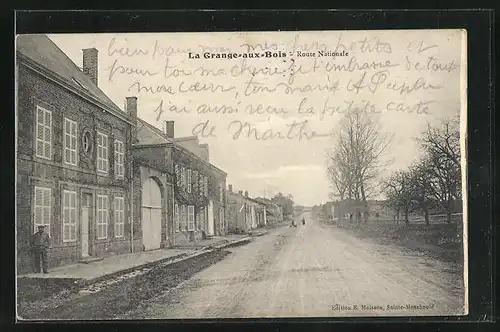 La Grange-aux-Bois - Route Nationale
bien pour moi mes chers petits et
pour toi ma chérie j'embrasse de tout
mon cœur, ton maris
j'ai aussi reçu la petite carte
de Marthe
Edition E. Moisson, Sainte-Menehould